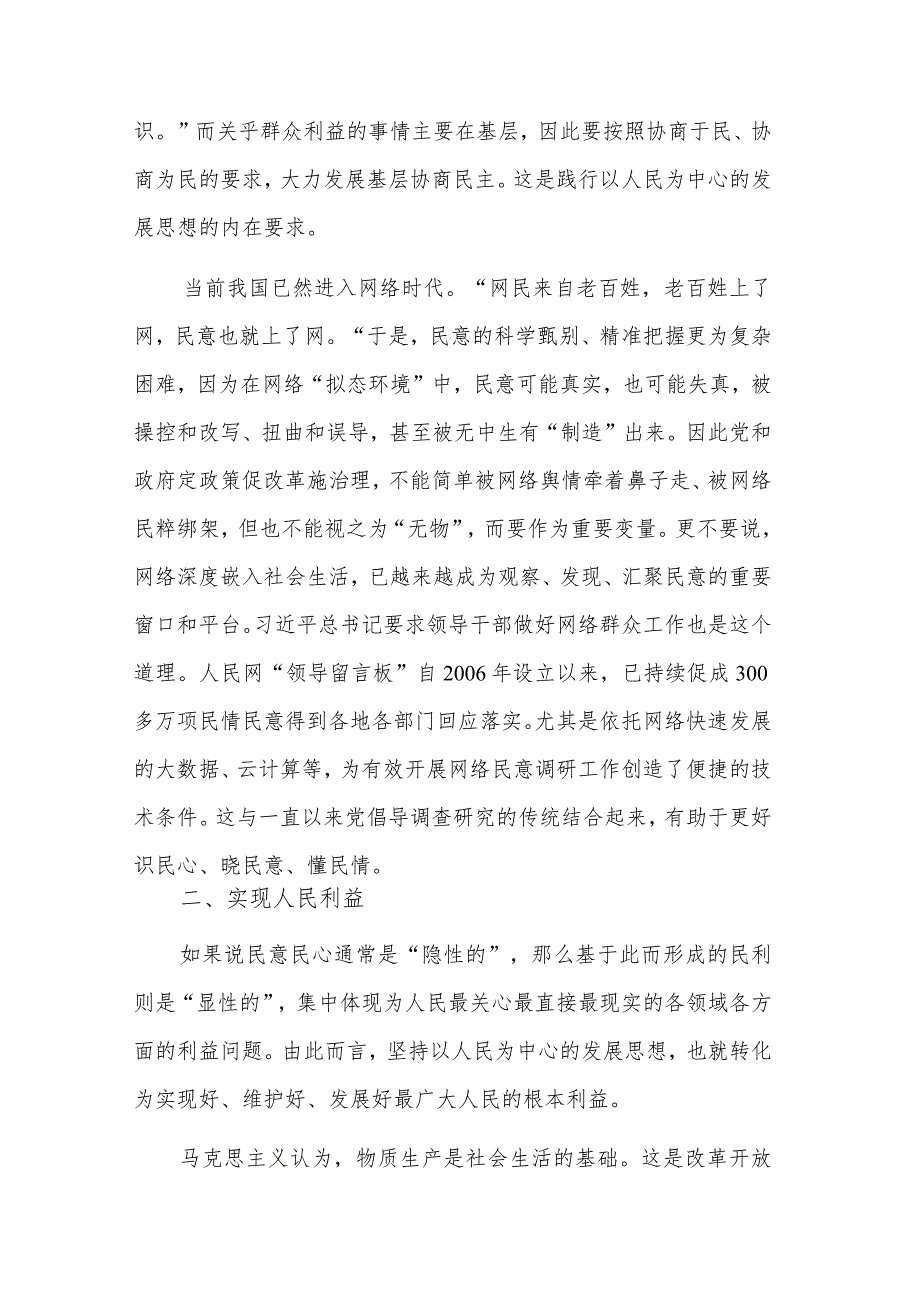 识。”而关乎群众利益的事情主要在基层，因此要按照协商于民、协
商为民的要求，大力发展基层协商民主。这是践行以人民为中心的发
展思想的内在要求。
当前我国已然进入网络时代。“网民来自老百姓，老百姓上了
网，民意也就上了网。“于是，民意的科学甄别、精准把握更为复杂
困难，因为在网络“拟态环境”中，民意可能真实，也可能失真，被
操控和改写、扭曲和误导，甚至被无中生有“制造”出来。因此党和
政府定政策促改革施治理，不能简单被网络舆情牵着鼻子走、被网络
民粹绑架，但也不能视之为“无物”，而要作为重要变量。更不要说，
网络深度嵌入社会生活，已越来越成为观察、发现、汇聚民意的重要
窗口和平台。习近平总书记要求领导干部做好网络群众工作也是这个
道理。人民网“领导留言板”自2006年设立以来，已持续促成300
多万项民情民意得到各地各部门回应落实。尤其是依托网络快速发展
的大数据、云计算等，为有效开展网络民意调研工作创造了便捷的技
术条件。这与一直以来党倡导调查研究的传统结合起来，有助于更好
识民心、晓民意、懂民情。
二、实现人民利益
如果说民意民心通常是“隐性的”，那么基于此而形成的民利
则是“显性的”，集中体现为人民最关心最直接最现实的各领域各方
面的利益问题。由此而言，坚持以人民为中心的发展思想，也就转化
为实现好、维护好、发展好最广大人民的根本利益。
马克思主义认为，物质生产是社会生活的基础。这是改革开放